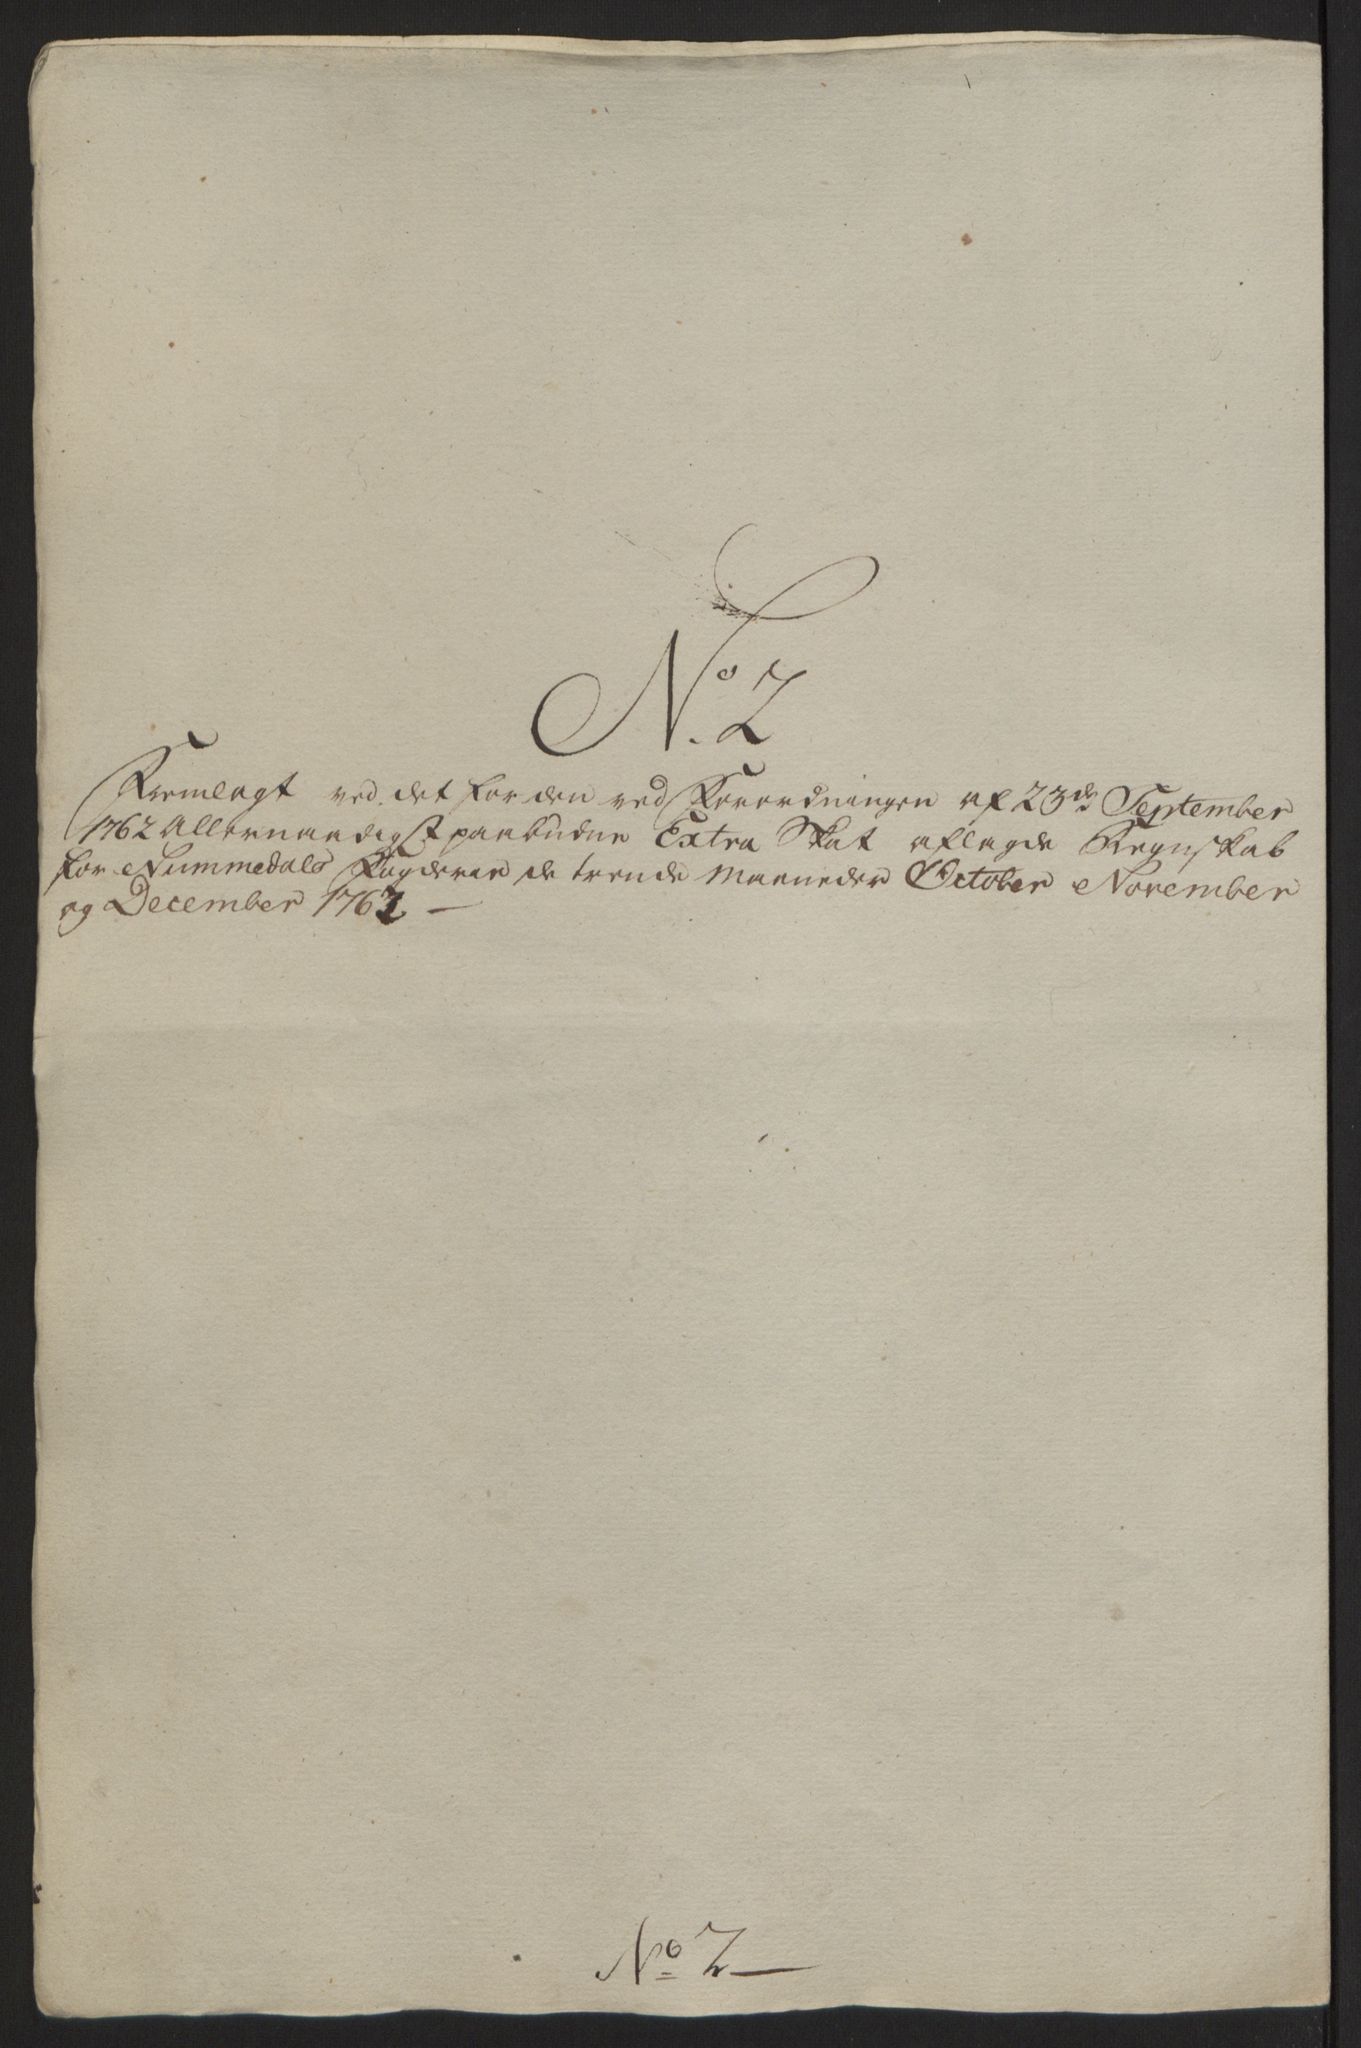 No. 2
Fremlagt ved det for den ved Forordningen af 23de September
1762 Allernaadigst paabudne Extra Skat aflagde Regnskab
for Nummedals Fogderie de trende Maaneder October November
og December 1762 —
No 2 —